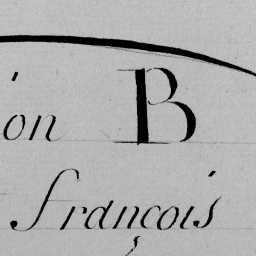 ion B
françois